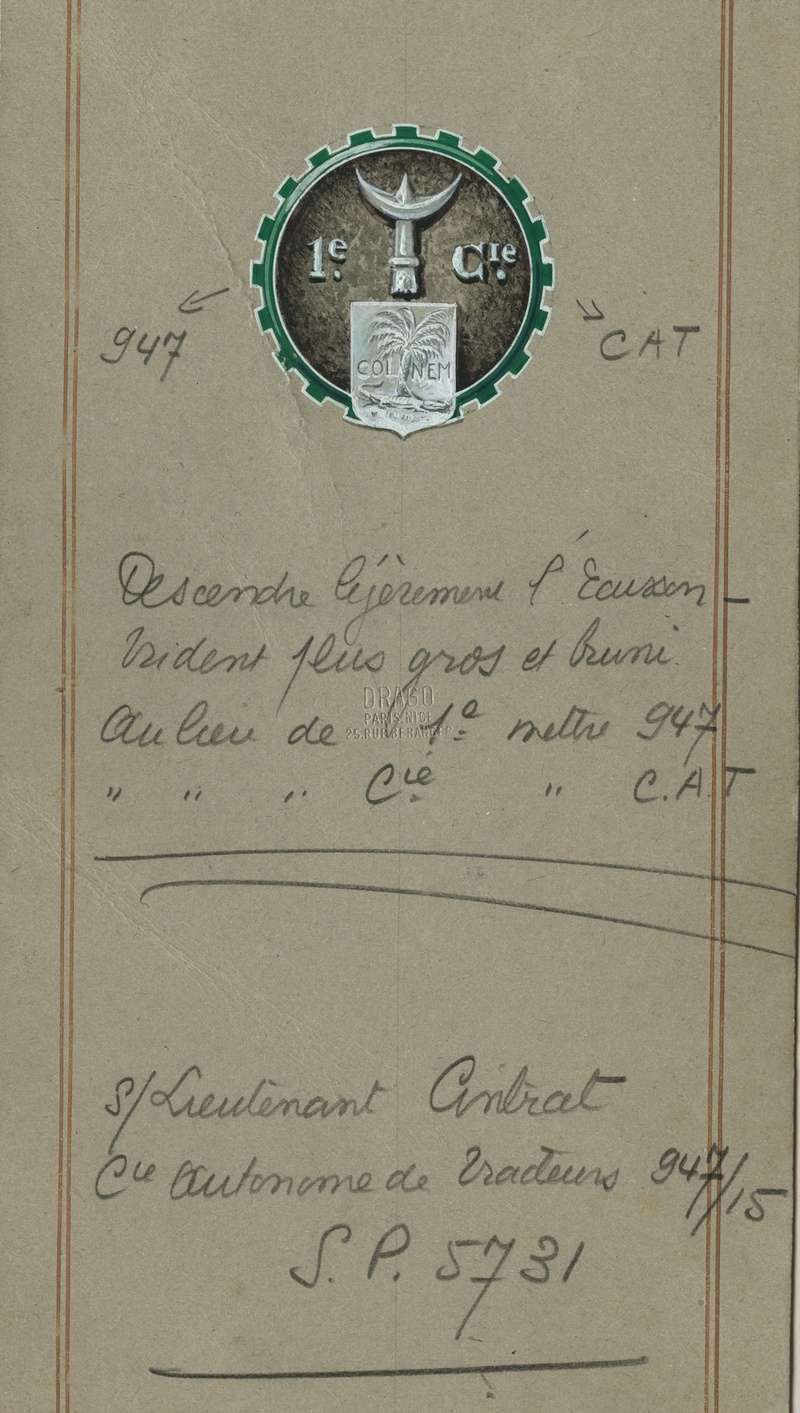 1e. Cie.
COL NEM
947
CAT
Descendre légèrement l'Écusson –
Trident plus gros et bruni.
DRAGO
PARIS NICE
25. RUE BERANGER
Au lieu de 1e mettre 947
" " " Cie " C.A.T
S/Lieutenant Cintrat
Cie Autonome de Tracteurs 947/15
S.P. 5731